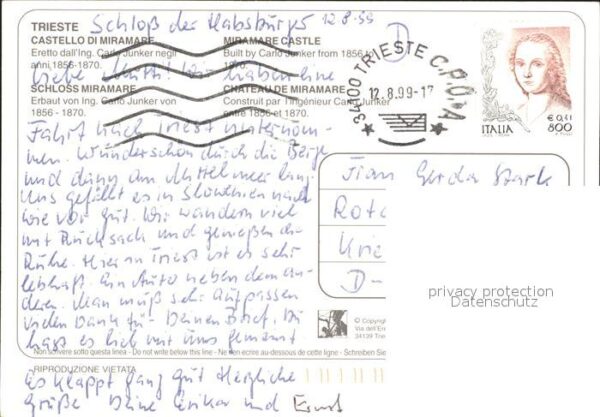 Schloß der Habsburgs 12.8.99
TRIESTE
CASTELLO DI MIRAMARE
Eretto dall'Ing. Carlo Junker negli
anni 1856-1870.
MIRAMARE CASTLE
Built by Carlo Junker from 1856 to
1870.
SCHLOSS MIRAMARE
Erbaut von Ing. Carl Junker von
1856 - 1870.
CHATEAU DE MIRAMARE
Construit par l'Ingénieur Carlo Junker
entre 1856 et 1870.
34100 TRIESTE C.P.O.A
12.8.99-17
€ 0,41
ITALIA 800
Liebe Mutti! Wir haben eine
Fahrt nach Triest unternom-
men. Wunderschön durch die Berge
und dann am Mittelmeer lang.
Uns gefällt es in Slowenien nach
wie vor gut. Wir wandern viel
mit Rucksack und genießen die
Ruhe. Hier in Triest ist es sehr
lebhaft. Ein Auto neben dem an-
deren. Man muß sehr aufpassen
Vielen Dank für Deinen Brief. Du
hast es lieb mit uns gemeint
Es klappt ganz gut Herzliche
Grüße Deine Erika und Ernst
Frau Gerda Stark
D-
privacy protection
Datenschutz
© Copyrig
Via dell'Er
34139 Trie
Non scrivere sotto questa linea - Do not write below this line - Ne rien écrire au-dessous de cette ligne - Schreiben Sie
RIPRODUZIONE VIETATA